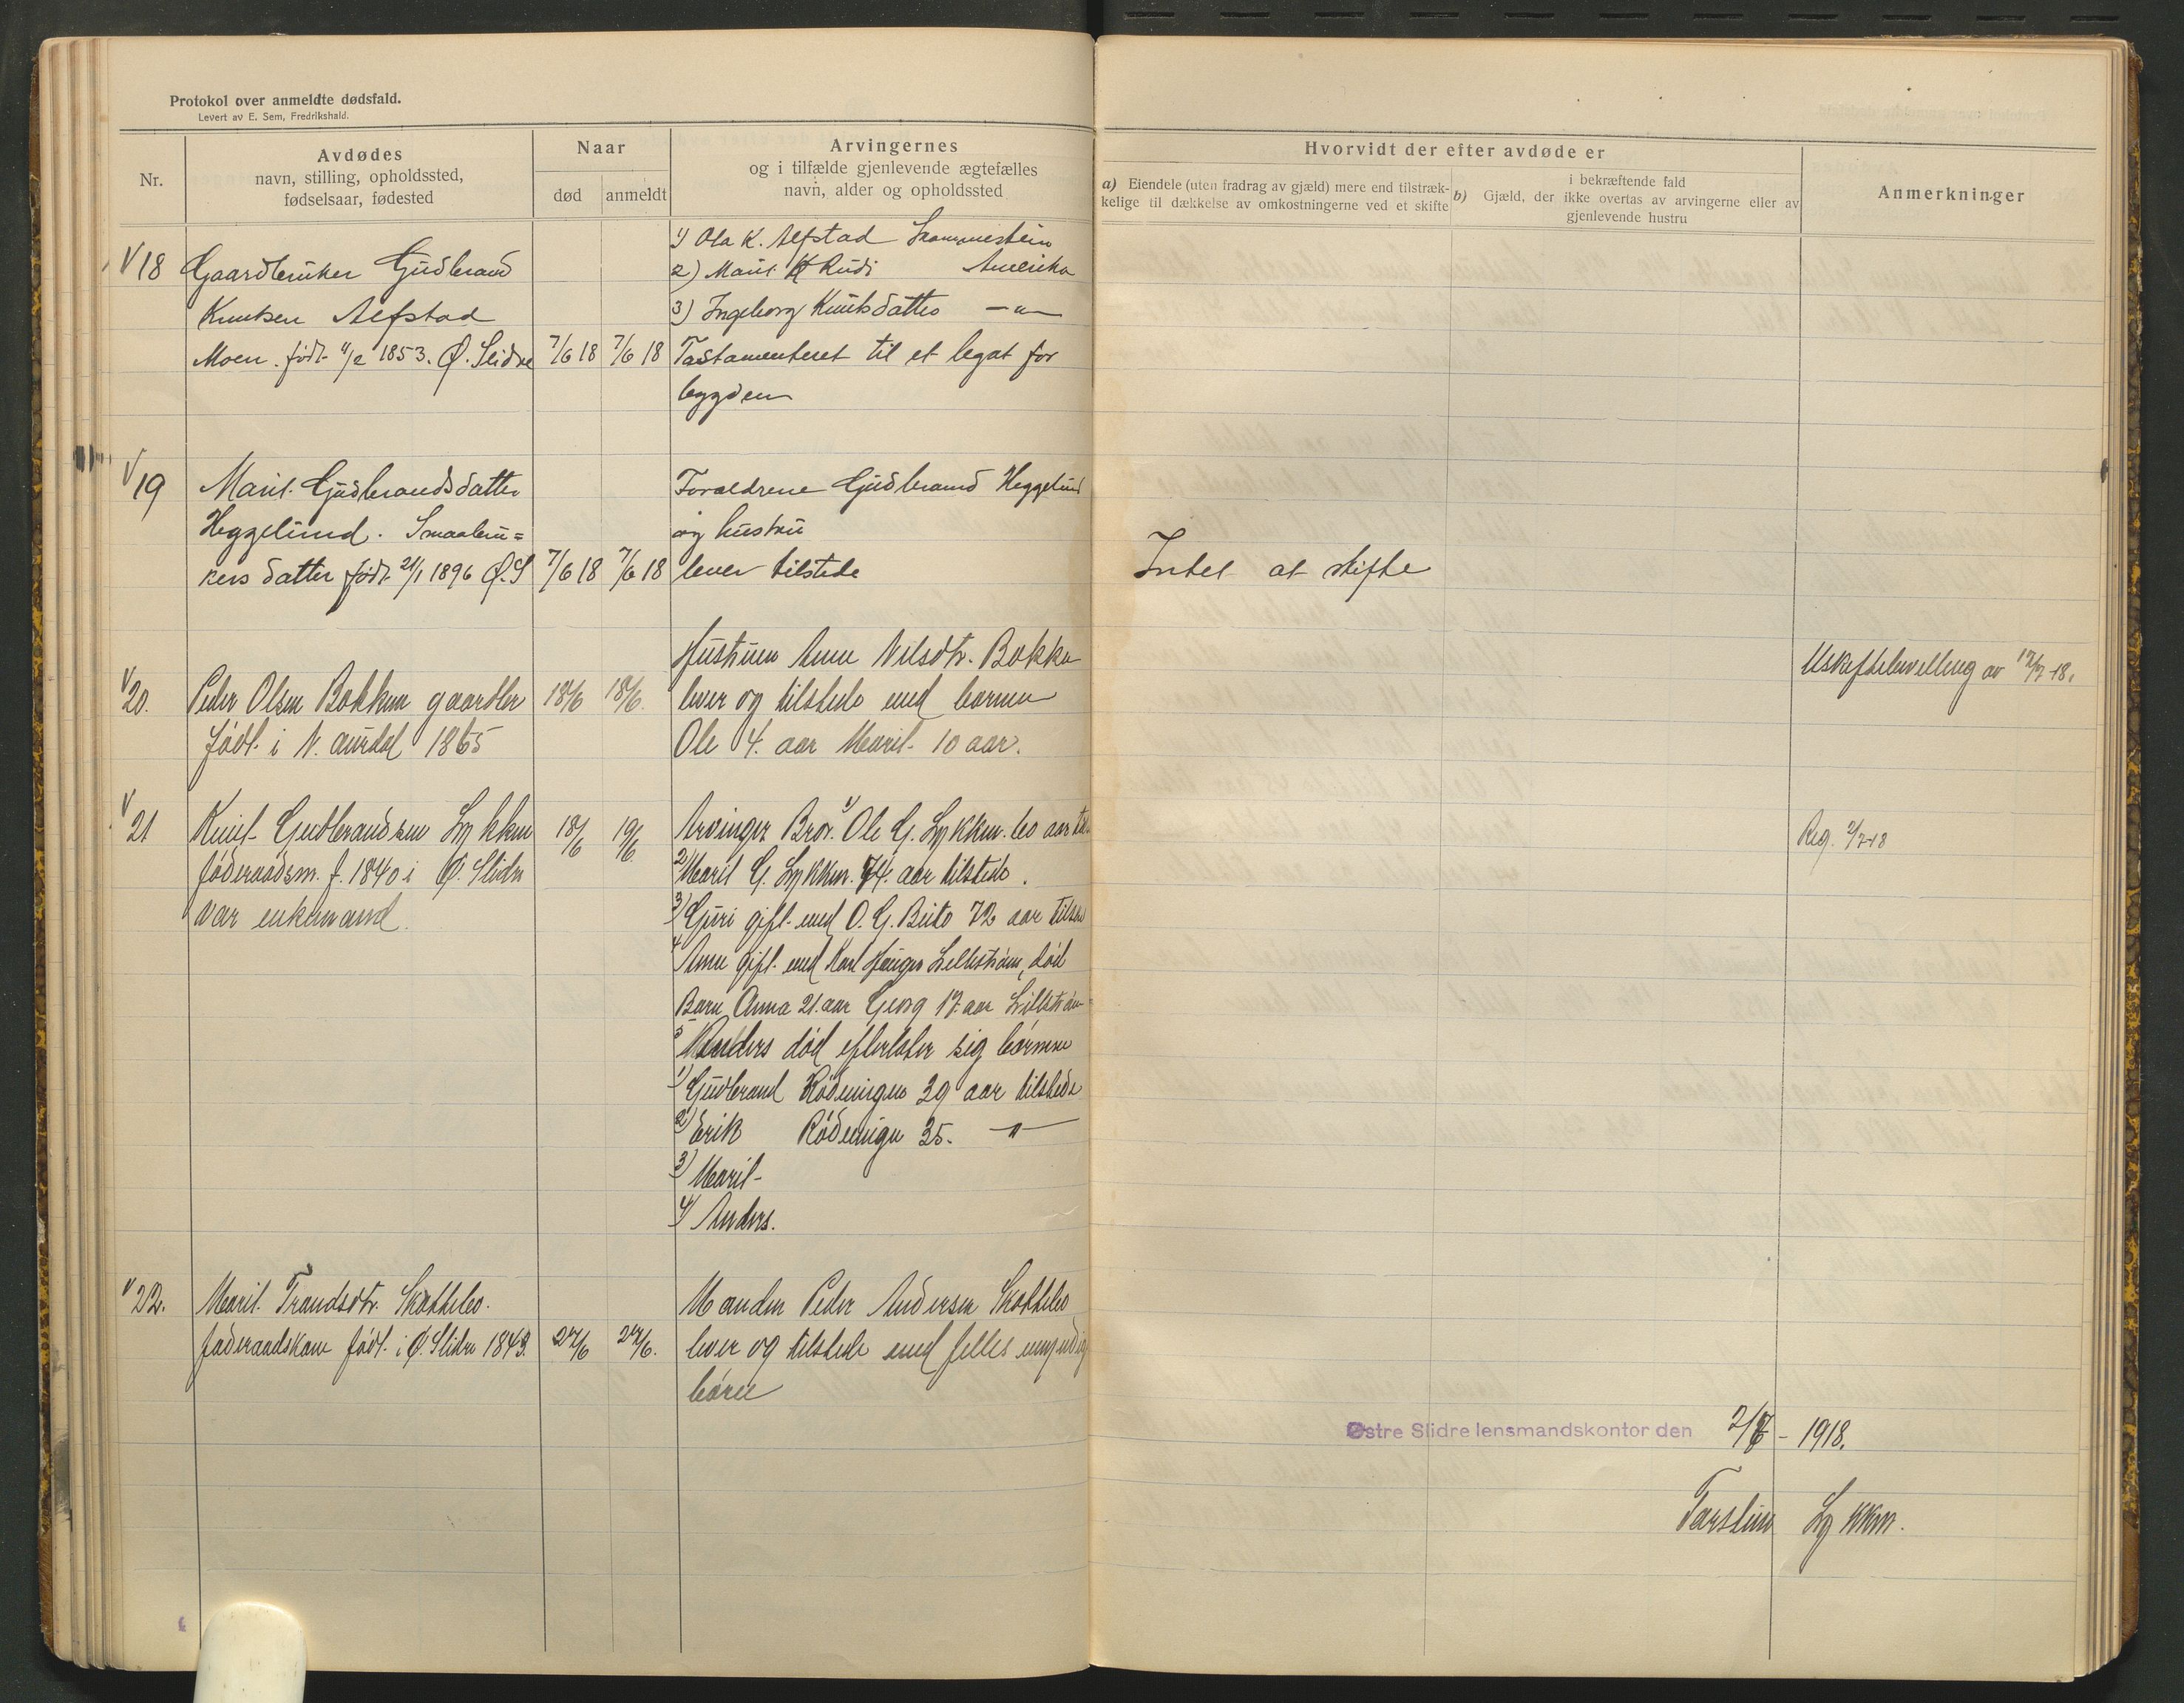 Protokol over anmeldte dødsfald.
Levert av E. Sem, Fredrikshald.
Nr.
Avdødes
navn, stilling, opholdssted,
fødselsaar, fødested
Naar
død
anmeldt
Arvingernes
og i tilfælde gjenlevende ægtefælles
navn, alder og opholdssted
Hvorvidt der efter avdøde er
a) Eiendele (uten fradrag av gjæld) mere end tilstræk-
kelige til dækkelse av omkostningerne ved et skifte
i bekræftende fald
b) Gjæld, der ikke overtas av arvingerne eller av
gjenlevende hustru
Anmerkninger
18 Gaardbruker Gudbrand
Knutsen Alfstad
Moen. født 4/2 1853. Ø. Slidre 7/6 18 7/6 18
1) Ola K. Alfstad Skammestein
2) Marit K Rudi Amerika
3) Ingeborg Knutsdatter —"—
Tastamenteret til et legat for
bygden
19 Marit Gudbrandsdatter
Heggelund. Smaabru=
kers datter født 21/1 1896 Ø.S 7/6 18 7/6 18
Foraldrene Gudbrand Heggelund
og hustru
lever tilstede
Intet at skifte
20. Peder Olsen Bakken gaardbr 18/6 18/6.
født i N. Aurdal 1865
Hustruen Anne Nilsdtr. Bakken
lever og tilstede med barnene
Ole 4. aar Marit 10 aar.
Uskiftebevilling av 17/7 18.
21 Knut Gudbrandsen Lykken 18/6 19/6.
føderaadsm. f. 1840 i Ø. Slidre
var enkemand.
Arvinger Bror. 1) Ole G. Lykken. 60 aar
2) Marit G. Lykken. 74. aar tilstede.
3) Guri gift med O. G. Beito 72 aar
4 Anne gift med Karl Lillestrøm, død
Barn Anna 21. aar Georg 17. aar Lillestrøm
5 Anders død efterlater sig børnene
1) Gudbrand Rødningen 39 aar tilstede
2) Erik Rødningen 35. —"—
3) Marit
4) Anders.
Reg. 2/7-18
22. Marit Trandsdtr. Skattebo.
føderaadskone født i Ø. Slidre 1843. 27/6 27/6.
Manden Peder Andersen Skattebo
lever og tilstede med felles myndige
børn
Østre Slidre lensmandskontor den 2/7 - 1918.
Tarstein Lykken.